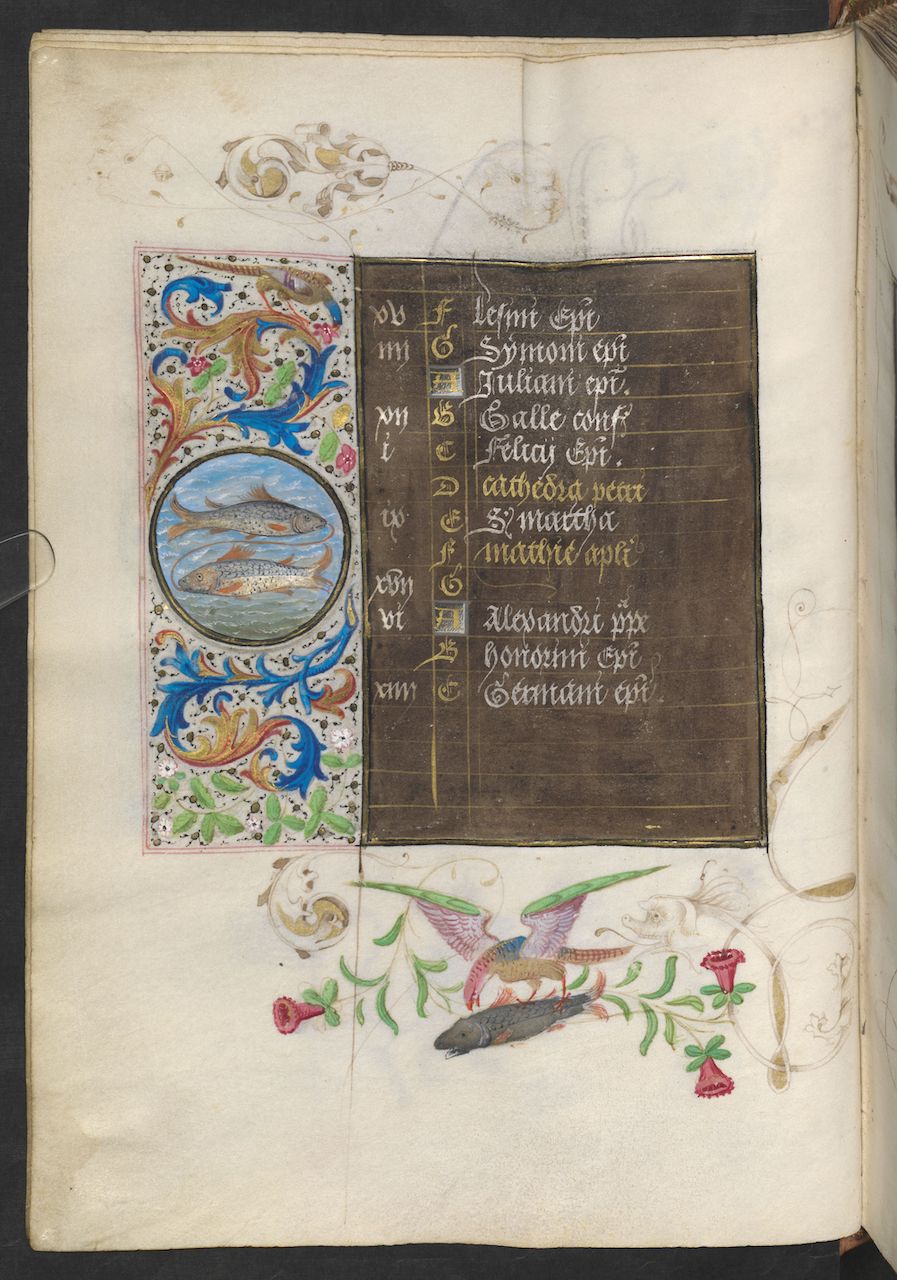 xv F Lesmi Epi
iiij G Symoni epi
A Juliani epi.
xij B Galle conf
i C Felicij Epi.
D cathedra petri
ix E S martha
F mathie apli
xvij G
vi A Alexandri ppe
B honorini Epi
xiiij C Germani epi